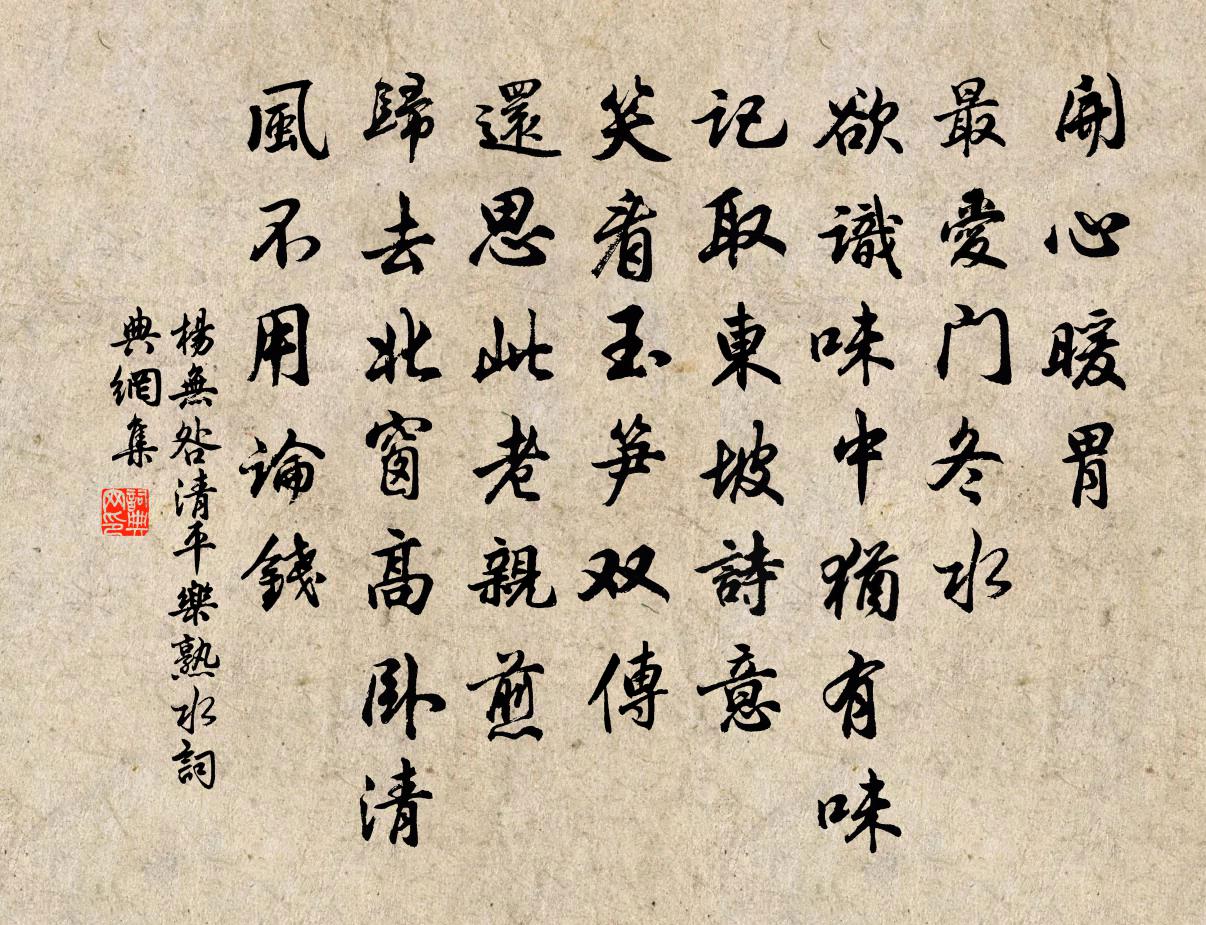 開心暖胃
最愛门冬水
欲識味中猶有味
記取東坡詩意
笑看玉笋双傳
還思此老親煎
歸去北窗高卧清
風不用論錢
楊無咎清平樂熟水詞
典網集
詞典
网印